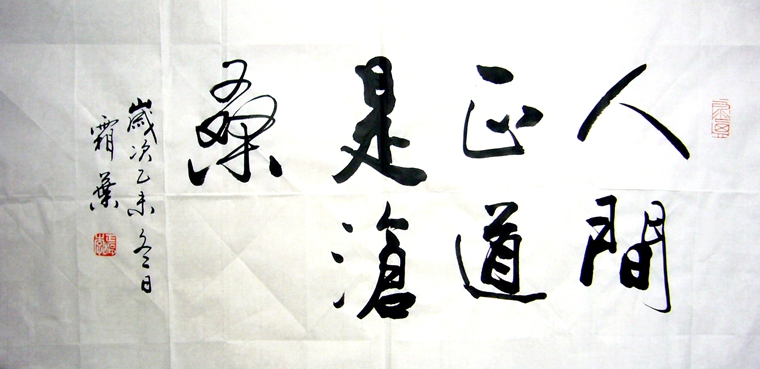 人間
正道
是滄
桑
歲次乙未冬日
霜葉